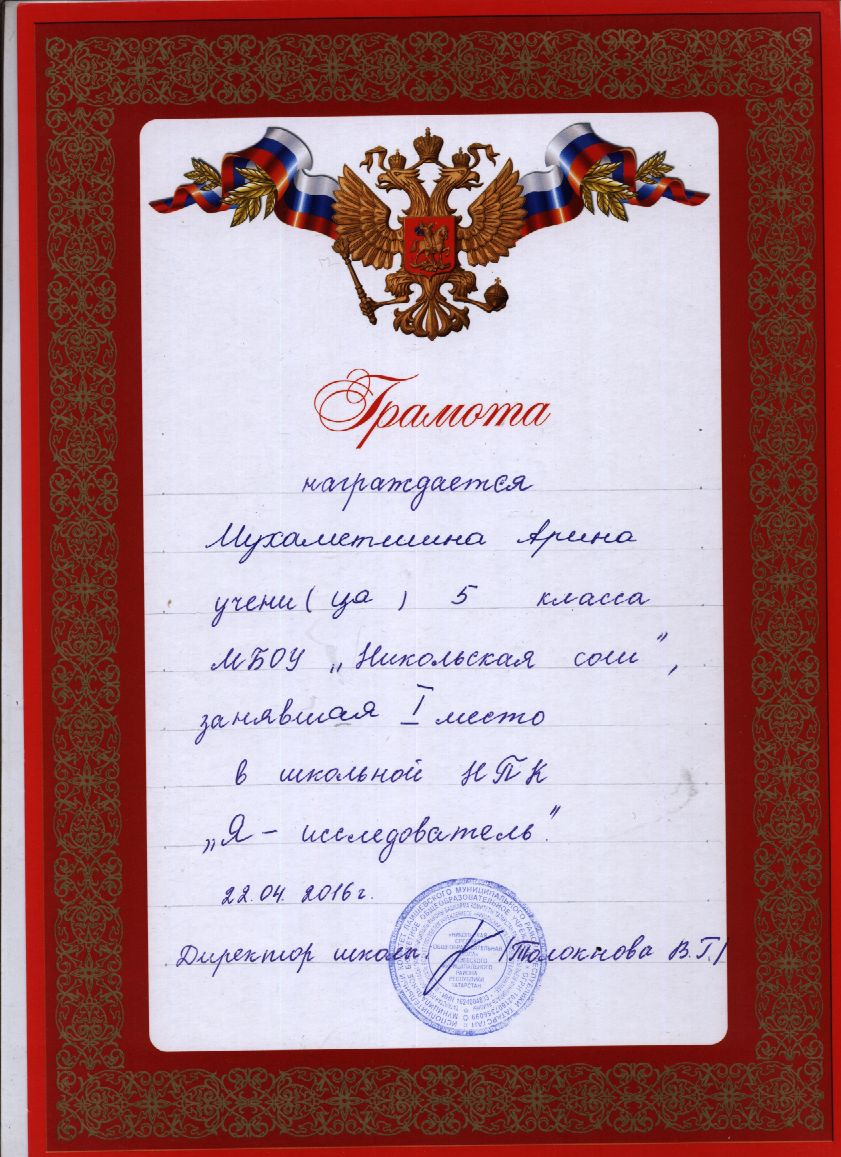 Грамота
награждается
Мухаметшина Арина
учени(ца) 5 класса
МБОУ „Никольская сош”,
занявшая I место
в школьной НПК
„Я - исследователь”.
22.04.2016г.
Директор школы. /Толокнова В.Г./
СРЕДНЯЯ
ОБЩЕОБРАЗОВАТЕЛЬНАЯ
РАЙОНА
РЕСПУБЛИКИ
ТАТАРСТАН